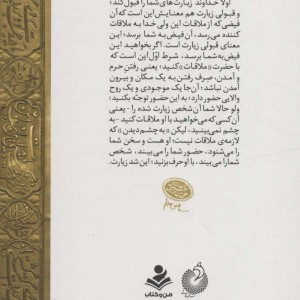 اولاً خداوند زیارت‌های شما را قبول کند؛
و قبولی زیارت هم معنایش این است که آن
فیضی که از ملاقات این ولی خدا به ملاقات
کننده می‌رسد، آن فیض به شما برسد؛ این
معنای قبولی زیارت است. اگر بخواهید این
فیض به شما برسد، شرط اوّل این است که
با حضرت «ملاقات» کنید؛ یعنی رفتن حرم
و آمدن، صِرف رفتن به یک مکان و بیرون
آمدن نباشد؛ آن‌جا یک موجودی و یک روح
والایی حضور دارد؛ به این حضور توجّه بکنید؛
ولو حالا شما آن شخص زیارت شده را - یعنی
آن کسی که می‌خواهید با او ملاقات کنید - به
چشم نمی‌بینید، لیکن «به چشم دیدن» که
لازمه‌ی ملاقات نیست؛ او هست و سخن شما
را می‌شنود، حضور شما را می‌بیند، شخص
شما را می‌بیند، با او حرف بزنید؛ این شد زیارت.
من و کتاب